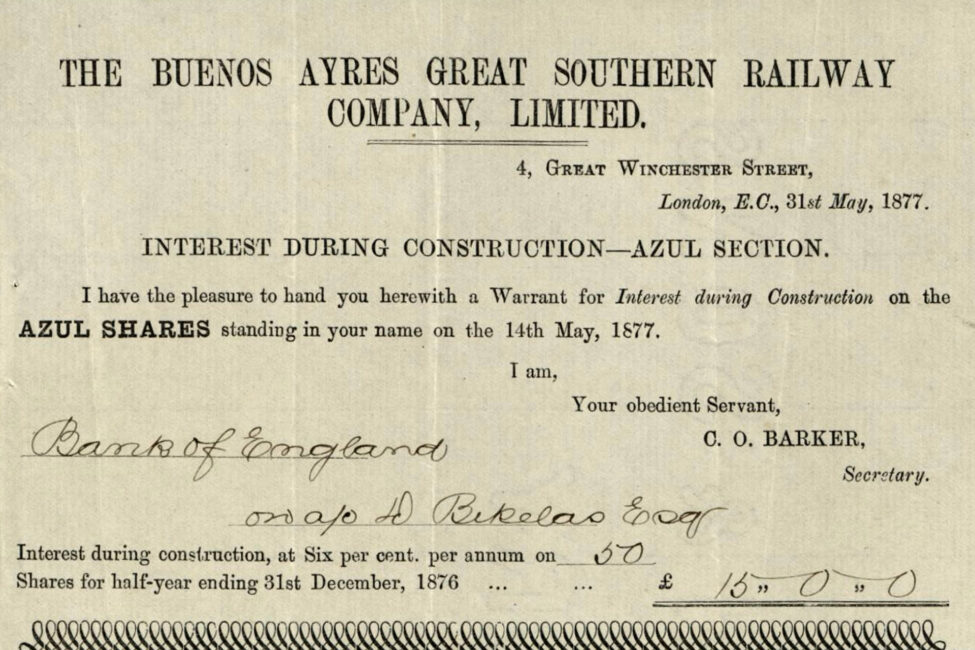 THE BUENOS AYRES GREAT SOUTHERN RAILWAY
COMPANY, LIMITED.
4, GREAT WINCHESTER STREET,
London, E.C., 31st May, 1877.
INTEREST DURING CONSTRUCTION—AZUL SECTION.
I have the pleasure to hand you herewith a Warrant for Interest during Construction on the
AZUL SHARES standing in your name on the 14th May, 1877.
I am,
Your obedient Servant,
C. O. BARKER,
Secretary.
Bank of England
on a/o D Bikelas Esq
Interest during construction, at Six per cent. per annum on 50
Shares for half-year ending 31st December, 1876 ... ... £ 15 „ 0 „ 0